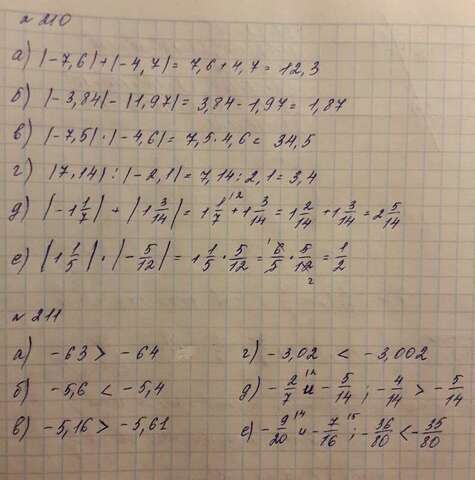 № 210
а) |-7,6|+|-4,7|= 7,6+4,7= 12,3
б) |-3,84|-|1,97|= 3,84-1,97= 1,87
в) |-7,5|·|-4,6|= 7,5·4,6= 34,5
г) |7,14|:|-2,1|= 7,14:2,1= 3,4
д) |-1 1/7|+|1 3/14|= 1 1/7 \2 +1 3/14 =1 2/14 +1 3/14 =2 5/14
е) |1 1/5|·|-5/12|= 1 1/5 · 5/12 = 6/5 · 5/12 = 1/2
№ 211
а) -63 > -64
б) -5,6 < -5,4
в) -5,16 > -5,61
г) -3,02 < -3,002
д) -2/7 \2 и -5/14 ; -4/14 > -5/14
е) -9/20 \4 и -7/16 \5 ; -36/80 < -35/80